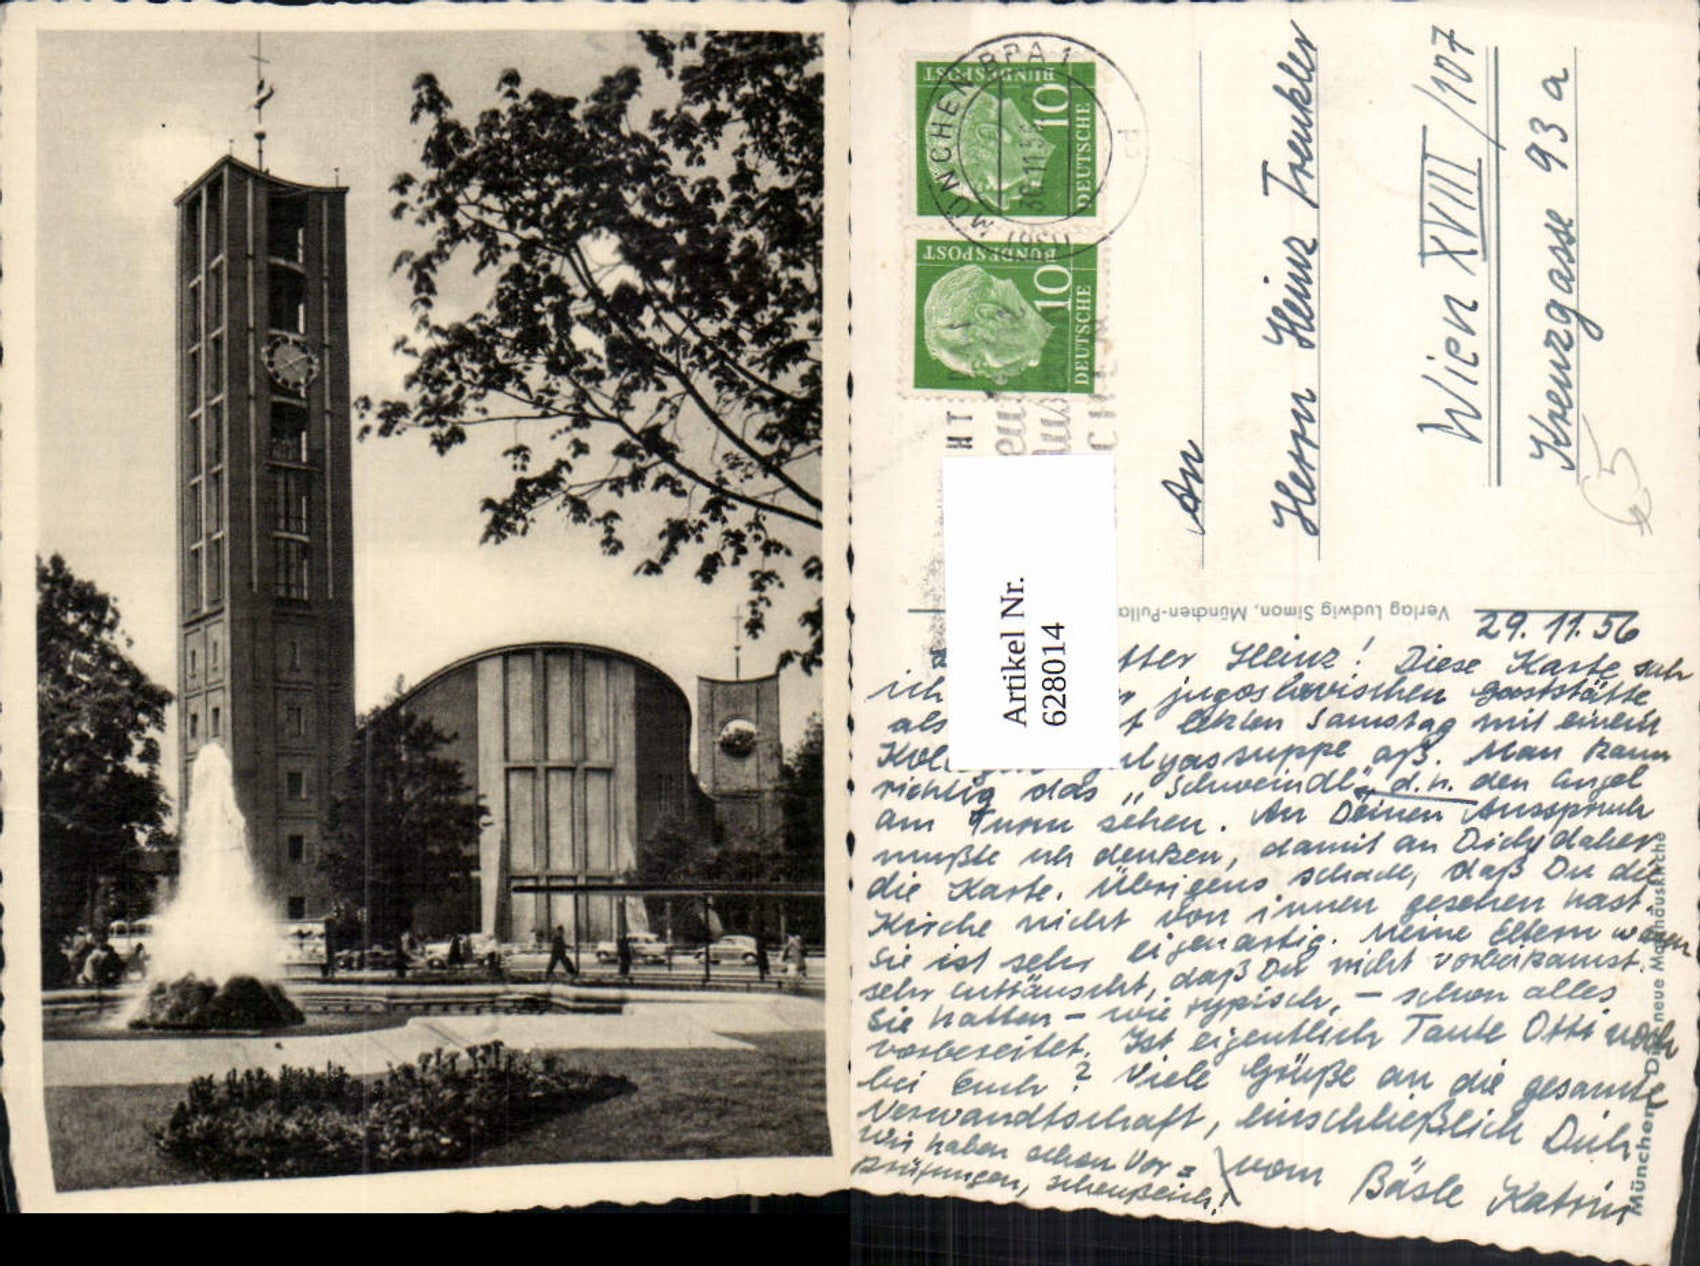 MÜNCHEN BPA 1
30.11.56
d
DEUTSCHE
BUNDESPOST
10
DEUTSCHE
BUNDESPOST
10
An
Herrn Heinz Trenkler
Wien XVIII/107
Kreuzgasse 93 a
Artikel Nr.
628014
Verlag Ludwig Simon, München-Pulla
29. 11. 56
tter Heinz! Diese Karte sah
ich jugoslavischen Gaststätte
als letzten Samstag mit einem
lyassuppe aß. Man kann
richtig das „Schweindl“, d.h. den Engel
am Turm sehen. An Deinen Ausspruch
mußte ich denken, damit an Dich, daher
die Karte. Übrigens schade, daß Du die
Kirche nicht von innen gesehen hast.
Sie ist sehr eigenartig. Meine Eltern waren
sehr enttäuscht, daß Du nicht vorbeikamst.
Sie hatten – wie typisch, – schon alles
vorbereitet. Ist eigentlich Tante Otti noch
bei Euch? Viele Grüße an die gesamte
Verwandtschaft, einschließlich Dich
vom Bäsle Katrin
Wir haben schon Vor=
prüfungen, scheußlich!
München Die neue Matthäuskirche